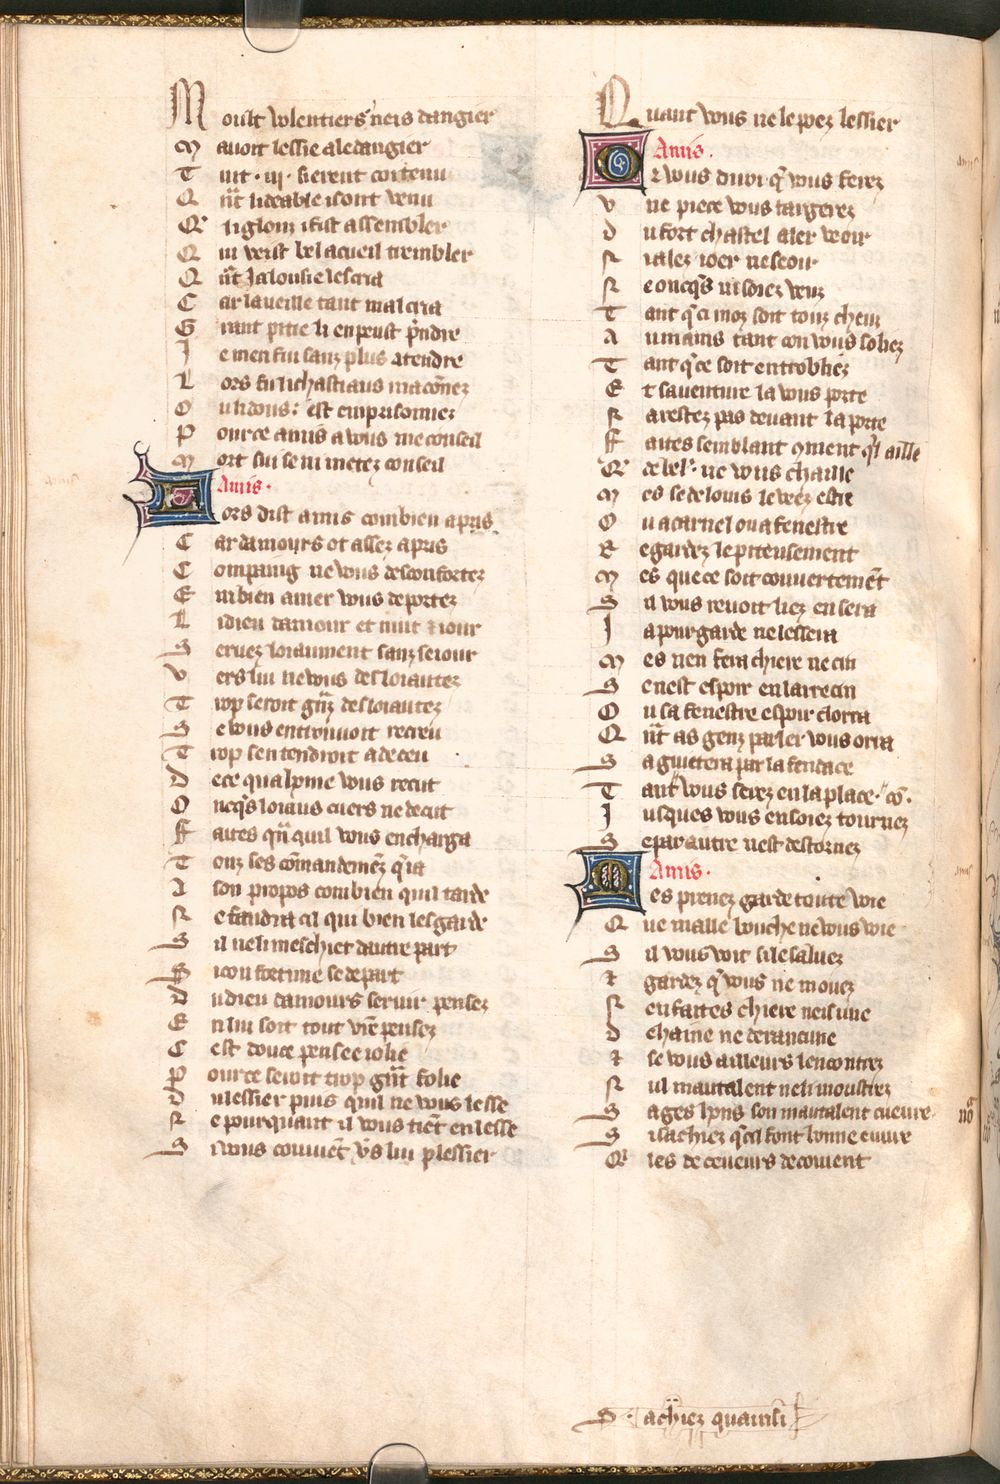 Moult volentiers neis dangier
Mauoit lessie a ledangier
Tuit .iij. sierent contenu
Qnt li deable i sont venu
Qi li glouz i fist assembler
Qui veist bel acueil trembler
Qnt Jalousie lescria
Car la veille tant mal cria
Grant pitie li en peust pndre
Je men fui sanz plus atendre
Lors fu li chastiaus maconez
Ou li douz est emprisonnez
Pour ce amis a vous me conseil
Mort sui se ni metez conseil
Amis.
Lors dist amis com bien apris
Car damours ot assez apris
Compainz ne vous desconfortez
En bien amer vous deportez
Li dieu damour et nuit z iour
Seruez loiaument sanz seiour
Vers lui ne vous desloiautez
Trop seroit gnz desloiautez
Se vous en trouuoit recreu
Trop sen tendroit a deceu
De ce qua hōme vous recut
Oncqs loiaus cuers ne decut
Faites qnquil vous encharga
Touz ses cōmandemēz qia
A son propos combien quil tarde
Ne faudra cil qui bien les garde
Sil ne li meschiet dautre part
Si con fortune se depart
Du dieu damours seruir pensez
En lui soit tout vr̄e pensez
Cest douce pensee iolie
Pour ce seroit trop gnt folie
Du lessier puis quil ne vous lesse
Ne pourquant il vous tiēt en lesse
Si vous conuiēt vs lui plessier
Quant vous ne le poez lessier
Amis.
Or vous diroi q̄ vous ferez
Vne piece vous targerez
Du fort chastel aler veoir
Nialez ioer ne seoir
Ne oncqs ni soiez veuz
Tant qci moz soit touz cheuz
Au mains tant con vous soliez
Tant qce soit entroubliez
Et sauenture la vous porte
Narestez pas deuant la porte
Faites semblant 9ment ql aille
Qi de bel. ne vous chaille
Mes se de louis le veez estre
Ou a carnel ou a fenestre
Regardez le piteusement
Mes que ce soit couuertemēt
Sil vous reuoit liez en sera
Ja pour garde ne lessera
Mes nen fera chiere ne cin
Se nest espoir en larrecin
Ou sa fenestre espoir clorra
Qnt as genz parler vous orra
Saguitera par la fendace
Tant vous serez en la place
Jusques vous en soiez tournez
Se par autre nest destornez
Amis.
Mes prenez garde toute voie
Que malle bouche ne vous voie
Sil vous voit si le saluez
Gardez q̄ vous ne mouez
Nen faites chiere neis vne
De haine ne de rancune
Et se vous ailleurs lencontrez
Nul mautalent ne li moustrez
Sages hōns son mautalent cueure
Si sachiez qcil font bonne euure
Qi les deceueurs decoiuent
Sachiez quainsi